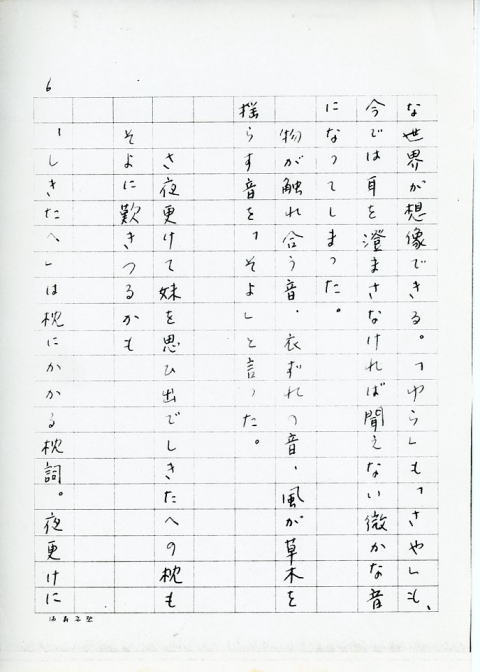 6
な世界が想像できる。「ゆら」も「さや」も、
今では耳を澄まさなければ聞えない微かな音
になってしまった。
物が触れ合う音、衣ずれの音、風が草木を
揺らす音を「そよ」と言った。
さ夜更けて妹を思ひ出でしきたへの枕も
そよに歎きつるかも
「しきたへ」は枕にかかる枕詞。夜更けに